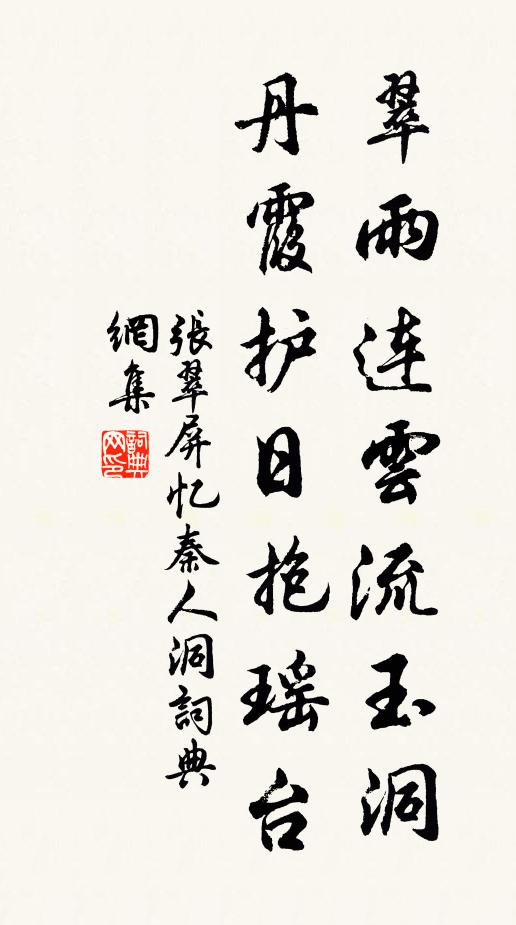 翠雨连雲流玉洞
丹霞护日抱瑶台
張翠屏忆秦人洞詞典
網集
詞典
网印